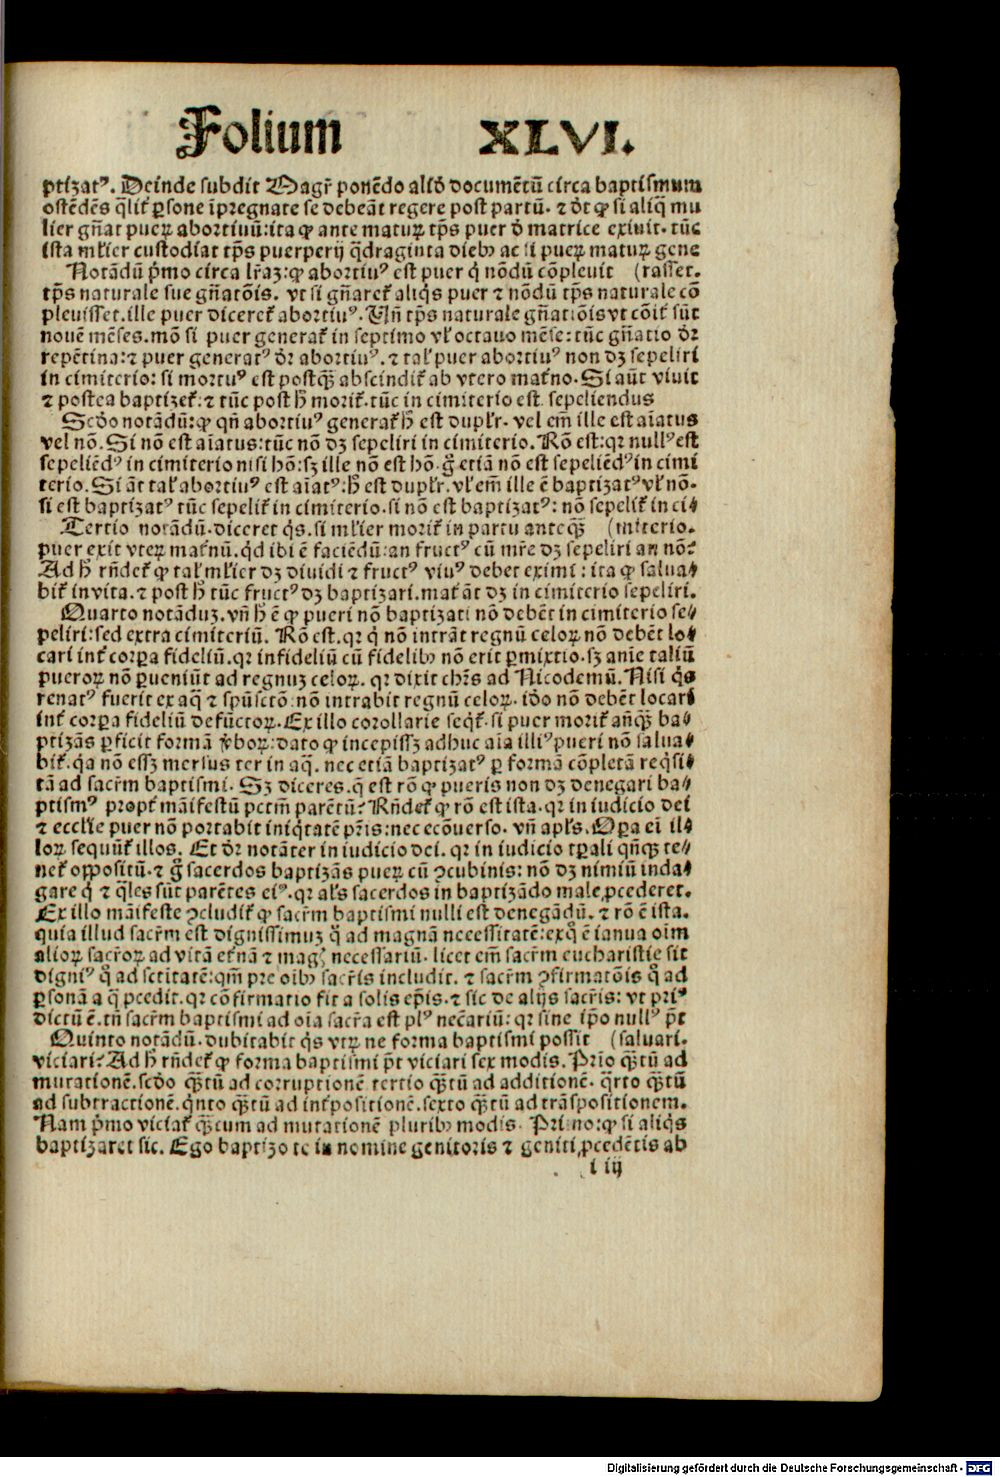 Folium XLVI.
ptizatꝰ. Deinde subdit Magr̃ ponẽdo aliđ documẽtũ circa baptismum
ostẽdẽs q̃lit᷑ ꝑsone ĩpregnate se debeãt regere post partũ. ⁊ dt ꝙ si aliq̃ mu
lier gñat pueꝝ abortiuũ: ita ꝙ ante matuꝝ tp̃s puer đ matrice exiuit. tũc
ista mlĩer custodiat tp̃s puerperij q̃draginta dieb⁊ ac si pueꝝ matuꝝ gene
Notãdũ p̃mo circa lr̃aꝫ: ꝙ abortiuꝰ est puer q̇ nõdũ cõpleuit (rasset.
tp̃s naturale sue gñatõis. vt si gñaret᷑ aliq̇s puer ⁊ nõdũ tp̃s naturale cõ
pleuisset. ille puer diceret᷑ abortiuꝰ. Uñ tp̃s naturale gñatiõis vt cõit᷑ sũt
nouẽ mẽses. mõ si puer generat᷑ in septimo vl̕ octauo mẽse: tũc gñatio dr̃
repẽtina: ⁊ puer generatꝰ dr̃ abortiuꝰ. ⁊ tal̕ puer abortiuꝰ non dꝫ sepeliri
in cimiterio: si mortuꝰ est postq̃ꝫ abscindit᷑ ab vtero mat᷑no. Si aũt viuit
⁊ postea baptizet᷑: ⁊ tũc post h̃ morit᷑. tũc in cimiterio est sepeliendus
Scđo notãdũ: ꝙ qñ abortiuꝰ generat᷑ h̃ est dupl̕r. vel em̃ ille est aĩatus
vel nõ. Si nõ est aĩatus: tũc nõ dꝫ sepeliri in cimiterio. Rõ est: qꝛ nullꝰ est
sepeliẽdꝰ in cimiterio nisi hõ: sꝫ ille nõ est hõ. g̃ etiã nõ est sepeliẽdꝰ in cimi
terio. Si ãt tal̕ abortiuꝰ est aĩatꝰ: h̃ est dupl̕r. vl̕ em̃ ille ẽ baptizatꝰ vl̕ nõ.
si est baptizatꝰ tũc sepelit᷑ in cimiterio. si nõ est baptizatꝰ: nõ sepelit᷑ in ci⸗
Tertio notãdũ. diceret q̇s. si mlĩer morit᷑ in partu anteq̃ꝫ (miterio.
puer exit vteꝝ mat᷑nũ. q̇d ibi ẽ faciẽdũ: an fructꝰ cũ mr̃e dꝫ sepeliri an nõ?
Ad h̃ rñdet᷑ ꝙ tal̕ mlĩer dꝫ diuidi ⁊ fructꝰ viuꝰ debet eximi: ita ꝙ salua⸗
bit᷑ in vita. ⁊ post h̃ tũc fructꝰ dꝫ baptizari. mat᷑ ãt dꝫ in cimiterio sepeliri.
Quarto notãduꝫ. vñ h̃ ẽ ꝙ pueri nõ baptizati nõ debẽt in cimiterio se⸗
peliri: sed extra cimiteriũ. Rõ est. qꝛ q̇ nõ intrãt regnũ celoꝝ nõ debẽt lo⸗
cari int᷑ corꝑa fideliũ. qꝛ infideliũ cũ fidelib⁊ nõ erit ꝑmixtio. sꝫ anĩe taliũ
pueroꝝ nõ ꝑueniũt ad regnuꝫ celoꝝ. qꝛ dixit chr̃s ad Nicodemũ. Nisi q̇s
renatꝰ fuerit ex aq̃ ⁊ spũsctõ: nõ intrabit regnũ celoꝝ. iđo nõ debẽt locari
int᷑ corꝑa fideliũ defũctoꝝ. Ex illo corollarie seqt᷑. si puer morit᷑ añq̃ꝫ ba⸗
ptizãs ꝑficit formã v̾boꝝ: dato ꝙ incepissꝫ adhuc aĩa illiꝰ pueri nõ salua⸗
bit᷑. q̃a nõ essꝫ mersus ter in aq̃. nec etiã baptizatꝰ ꝑ formã cõpletã req̇si⸗
tã ad sacr̃m baptismi. Sꝫ diceres. q̃ est rõ ꝙ pueris non dꝫ denegari ba⸗
ptismꝰ propt᷑ mãifestũ pctm̃ parẽtũ? Rñdet᷑ ꝙ rõ est ista. qꝛ in iudicio dei
⁊ ecclĩe puer nõ portabit iniq̇tatẽ pr̃is: nec ecõuerso. vñ apl̕s. Oꝑa ei᷑ il⸗
loꝝ sequũt᷑ illos. Et dr̃ notãter in iudicio dei. qꝛ in iudicio tꝑali qñq̃ꝫ te⸗
net᷑ oppositũ. ⁊ g̃ sacerdos baptizãs pueꝝ cũ ꝯcubinis: nõ dꝫ nimiũ inda⸗
gare q̇ ⁊ q̃les sũt parẽtes eiꝰ. qꝛ al̕s sacerdos in baptizãdo male ꝓcederet.
Ex illo mãifeste ꝯcludit᷑ ꝙ sacr̃m baptismi nulli est denegãdũ. ⁊ rõ ẽ ista.
quia illud sacr̃m est dignissimuꝫ q̃ ad magnã necessitatẽ: ex q̃ ẽ ianua oim̃
alioꝝ sacroꝝ ad vitã et᷑nã ⁊ mag̃ necessariũ. licet em̃ sacr̃m eucharistie sit
digniꝰ q̃ ad sctitatẽ: qm̃ pre oib⁊ sacr̃is includit. ⁊ sacr̃m ꝯfirmatõis q̃ ad
ꝑsonã a q̃ ꝓcedit. qꝛ cõfirmatio fit a solis ep̃is. ⁊ sic de alijs sacr̃is: vt priꝰ
dictũ ẽ. tñ sacr̃m baptismi ad oĩa sacr̃a est plꝰ necẽariũ: qꝛ sine ip̃o nullꝰ p̃t
Quinto notãdũ. dubitabit q̇s vtꝝ ne forma baptismi possit (saluari.
viciari? Ad h̃ rñdet᷑ ꝙ forma baptismi p̃t viciari sex modis. Prĩo q̃ꝫtũ ad
mutationẽ. scđo q̃ꝫtũ ad corruptionẽ tertio q̃ꝫtũ ad additionẽ. q̃rto q̃ꝫtũ
ad subtractionẽ. q̇nto q̃ꝫtũ ad int᷑positionẽ. sexto q̃ꝫtũ ad trãspositionem.
Nam p̃mo viciat᷑ q̃ꝫtum ad mutationẽ plurib⁊ modis. Primo: ꝙ si aliq̇s
baptizaret sic. Ego baptizo te in nomine genitoris ⁊ geniti ꝓcedẽtis ab
i iij
Digitalisierung gefördert durch die Deutsche Forschungsgemeinschaft - DFG